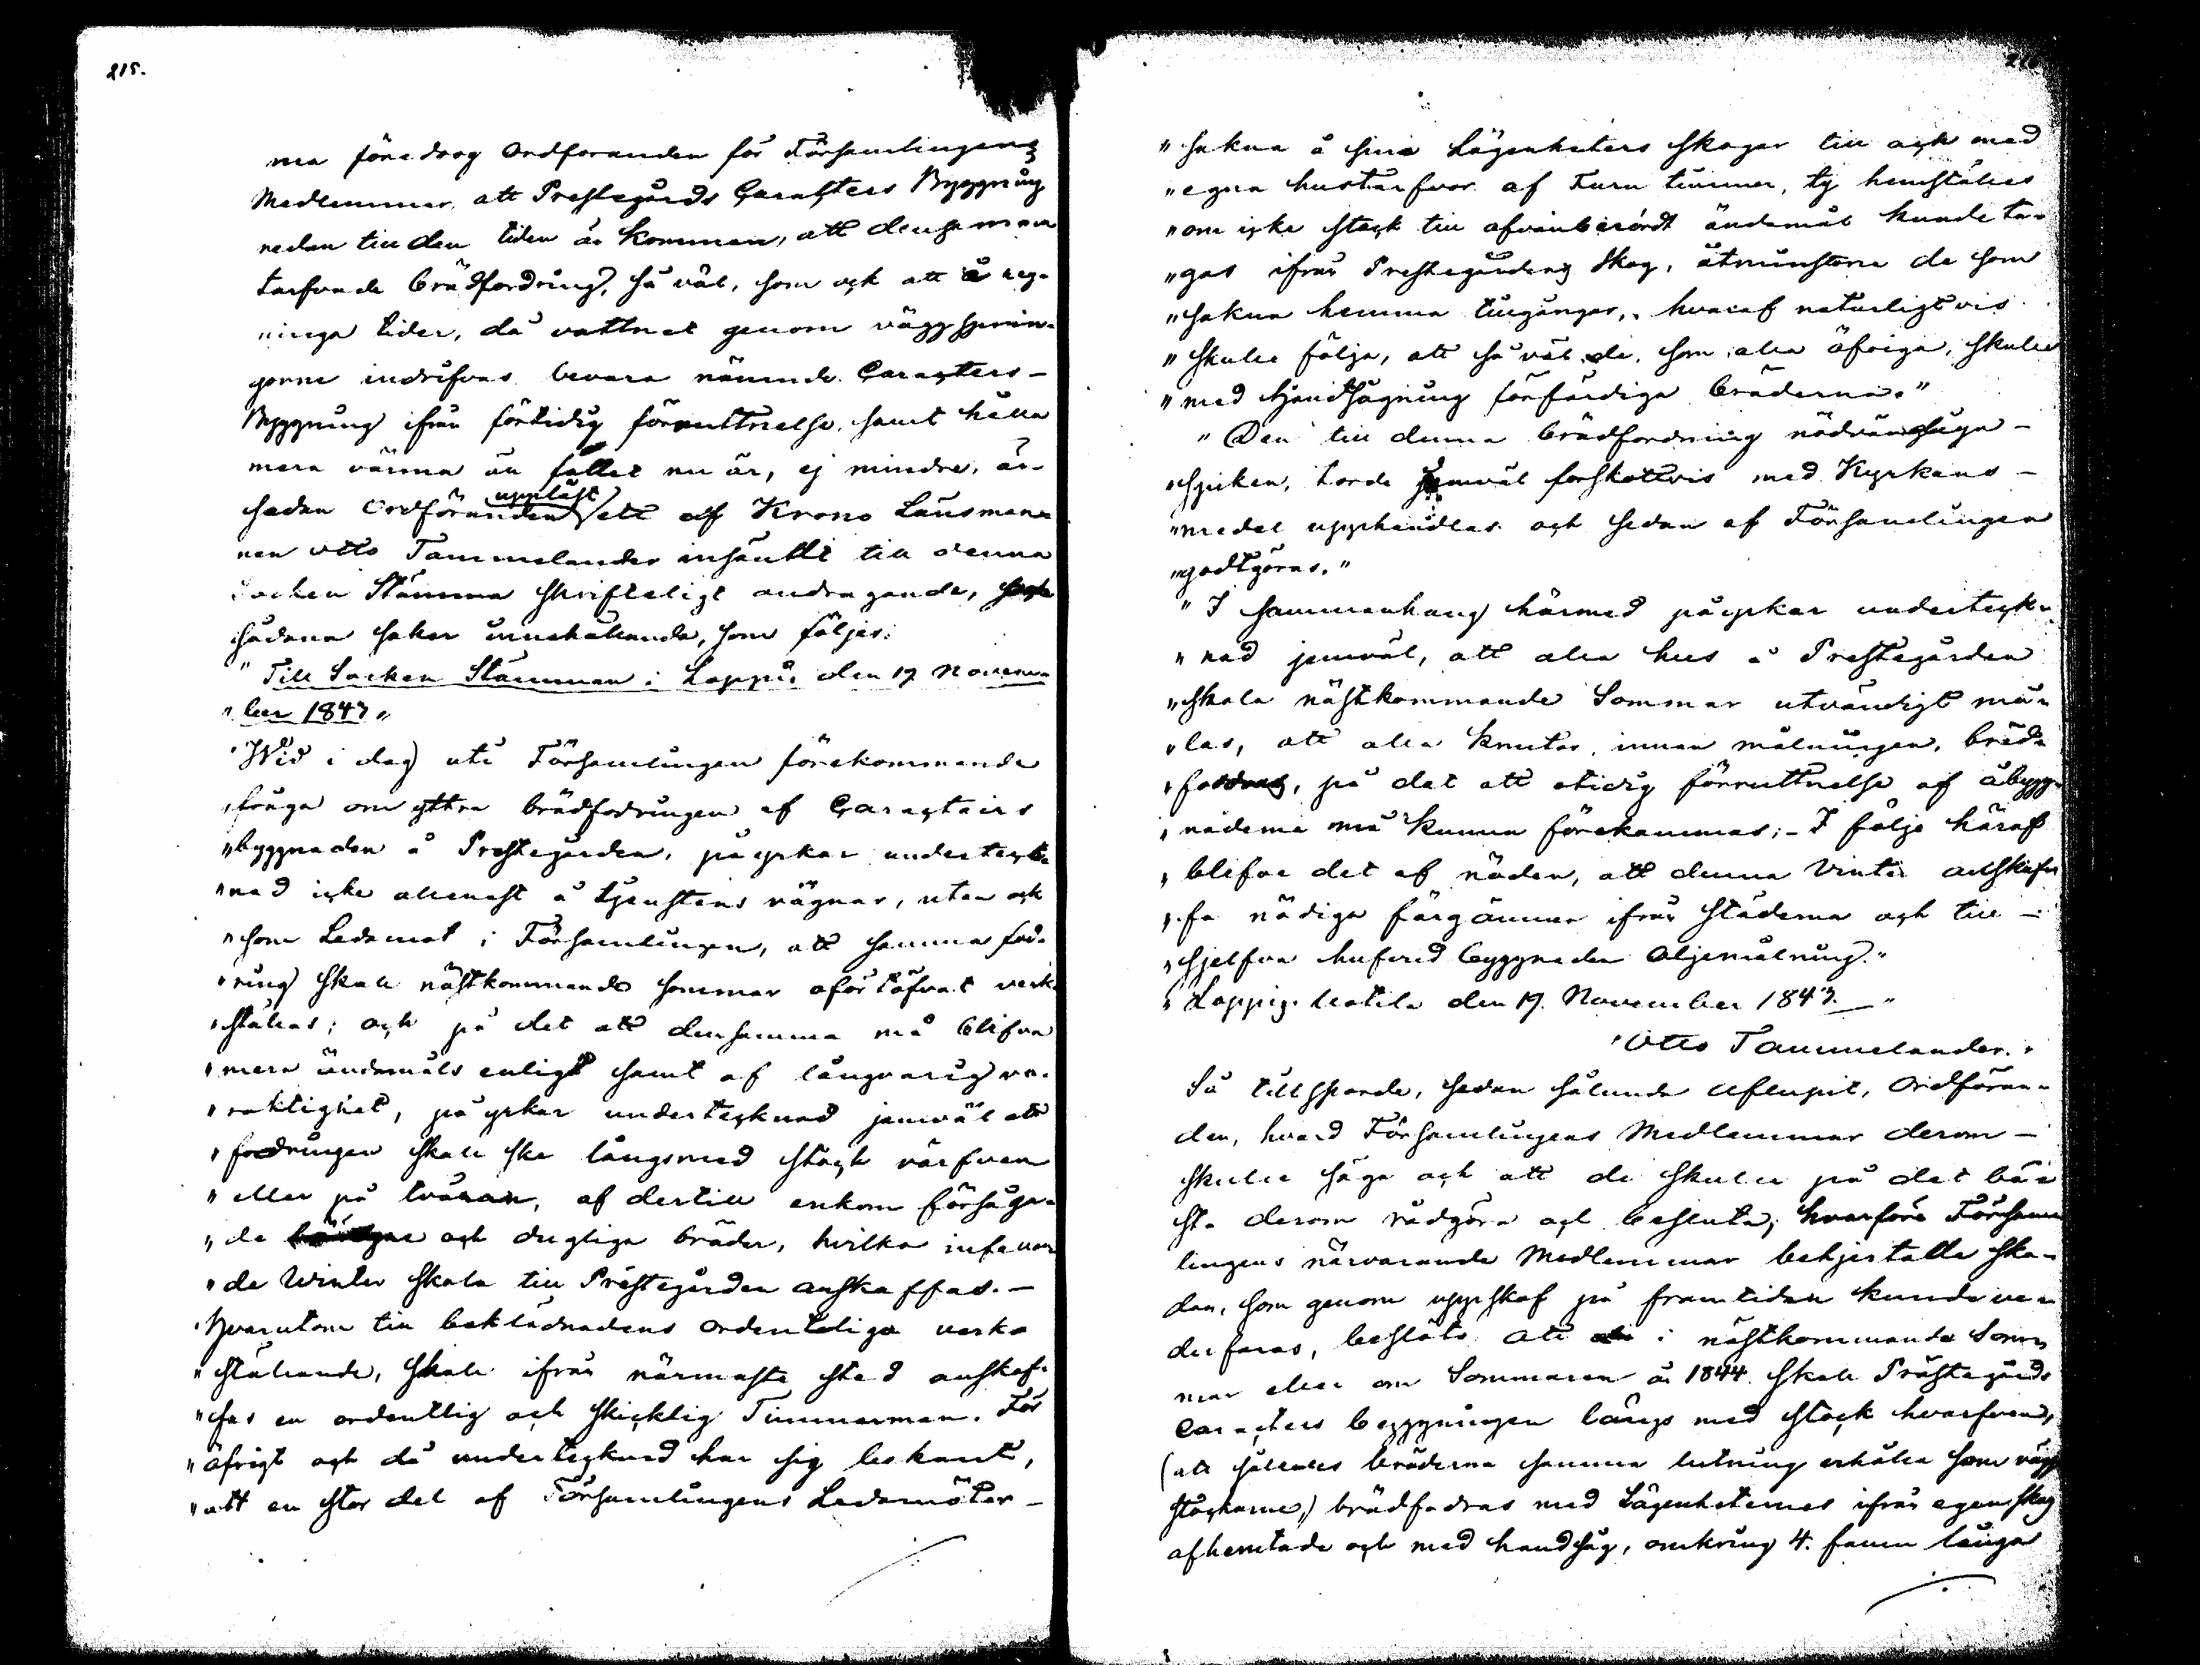 215.
ma föredrog Ordföranden för Församlingens
Medlemmar, att Prestegårds Caracters Byggning
redan till den tiden är kommen, att densamma
tarfvade brädfordring, så väl, som ock att å reg-
niga tider, då vattnet genom väggsprin-
gorne indrifvas bevara nämnde Caracters-
Byggning ifrån förtidig förruttnelse, samt hålla
mera värma än fallet nu är, ej mindre, än
sedan Ordföranden uppläst ett af Krono Länsman-
nen Otto Tammelander insändt till denna
Socken Stämma skrifteligt andragande,
sådana saker innehållande, som följer:
" Till Socken Stämman i Loppis den 19 Novem
" ber 1843 "
" Wid i dag uti Församlingen förekommande
" fråga om yttra brädfodringen af Caractairs
" byggnaden å Prestegården, påyrkar underteck
" nad icke allenast å tjenstens vägnar, utan ock
" som Ledamot i Församlingen, att samma fod-
" ring skall nästkommande sommar oförtöfvat verk-
" ställas; och på det att densamma må blifva
" mera ändamåls enligt samt af långvarig va-
" raktighet, påyrkar undertecknad jemväl att
" fodringen skall ske långsmed stock varfven
" eller på tväran, af dertill enkom försåga-
" de och dugliga bräder, hvilka infallan
" de Winter skola till Prestegården anskaffas. –
" Hvarutom till beklädnadens ordentliga verk-
" ställande, skall ifrån närmaste stad anskaf-
" fas en ordentlig och skicklig Timmerman. För
" öfrigt och då undertecknad har sig bekant,
" att en stor del af Församlingens Ledamöter –
216
" sakna å sina Lägenheters skogar till och med
" egna hustarfvor af Furu timmer, ty hemställes
" om icke stock till ofvanberördt ändamål kunde ta-
" gas ifrån Prestegårdens Skog, åtminstone de som
" sakna hemma tillgångar, hvaraf naturligtvis
" skulle följa, att så väl de, som alla öfriga, skulle
" med Handsågning förfärdiga bräderna."
" Den till denna brädfordring nödvändiga –
" spiken, torde jemväl förskottvis med Kyrkans –
" medel upphandlas och sedan af Församlingen
" godtgöras."
" I sammanhang härmed påyrkar underteck-
" nad jemväl, att alla hus å Prestegården
" skola nästkommande Sommar utvändigt må-
" las, att alla knutar, innan målningen, bräd-
" fodras, på det att otidig förruttnelse af åbygg-
" naderna må kunna förekommas; – I följe häraf
" blifver det af nöden, att denna Vinter anskaf
" fa nödiga färgämnen ifrån städerna och till –
" sjelfva hufvud byggnaden Oljemålning."
" Loppis Leatila den 19. November 1843. – "
" Otto Tammelander. "
Så tillsporde, sedan sålunda aflupit, Ordföran-
den, hvad Församlingens Medlemmar derom –
skulle säga och att de skulle på det bä-
sta derom rådgöra och besluta; hvarföre Försam
lingens närvarande Medlemmar behjertade ska-
dan, som genom uppskof på framtiden kunde ve-
derfaras, beslöto att i nästkommande Som-
mar eller om Sommaren år 1844. skall Prästegårds
Caracters byggningen långs med stock hvarfvena,
(att således bräderna samma lutning erhålla som vägg
stockarne,) brädfodras med Lägenheternes ifrån egen skog
afhemtade och med handsåg, omkring 4. famn långa